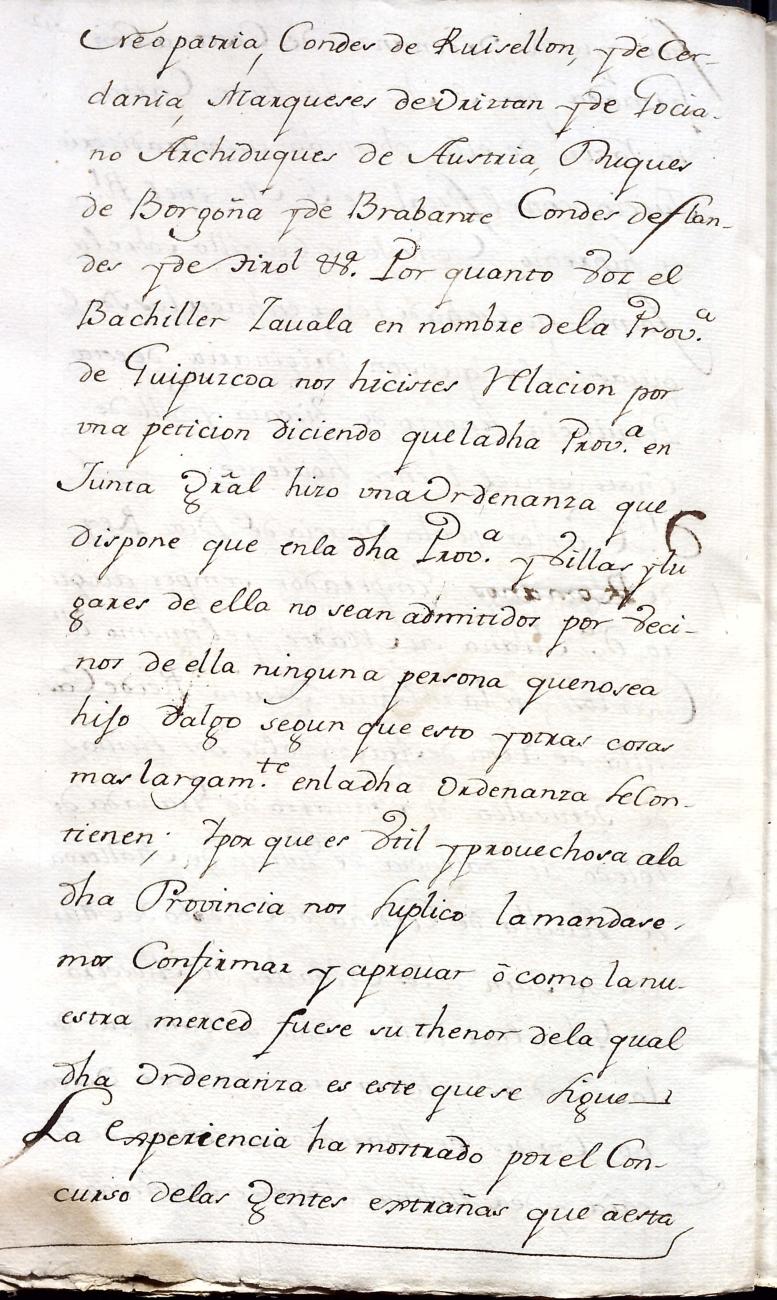 Neopatria, Condes de Ruisellon, y de Cer-
dania, Marqueses de Oriztan y de Gocia-
no Archiduques de Austria, Duques
de Borgoña y de Brabante Condes de flan-
des y de Tirol &ª. Por quanto Vos el
Bachiller Zauala en nombre dela Prov.ª
de Guipuzcoa nos hicistes Relacion por
vna peticion diciendo que la dha Prov.ª en
Junta Gral hizo vna Ordenanza que
dispone que en la dha Prov.ª y Villas y lu
gares de ella no sean admitidos por Veci-
nos de ella ninguna persona que no sea
hijo dalgo segun que esto y otras cosas
mas largam.te en la dha Ordenanza se Con-
tienen; Y por que es Vtil y prouechosa a la
dha Provincia nos suplico la mandase-
mos Confirmar y aprouar ô como la nu-
estra merced fuese su thenor de la qual
dha Ordenanza es este que se sigue
La Experiencia ha mostrado por el Con-
curso de las Gentes extrañas que â esta